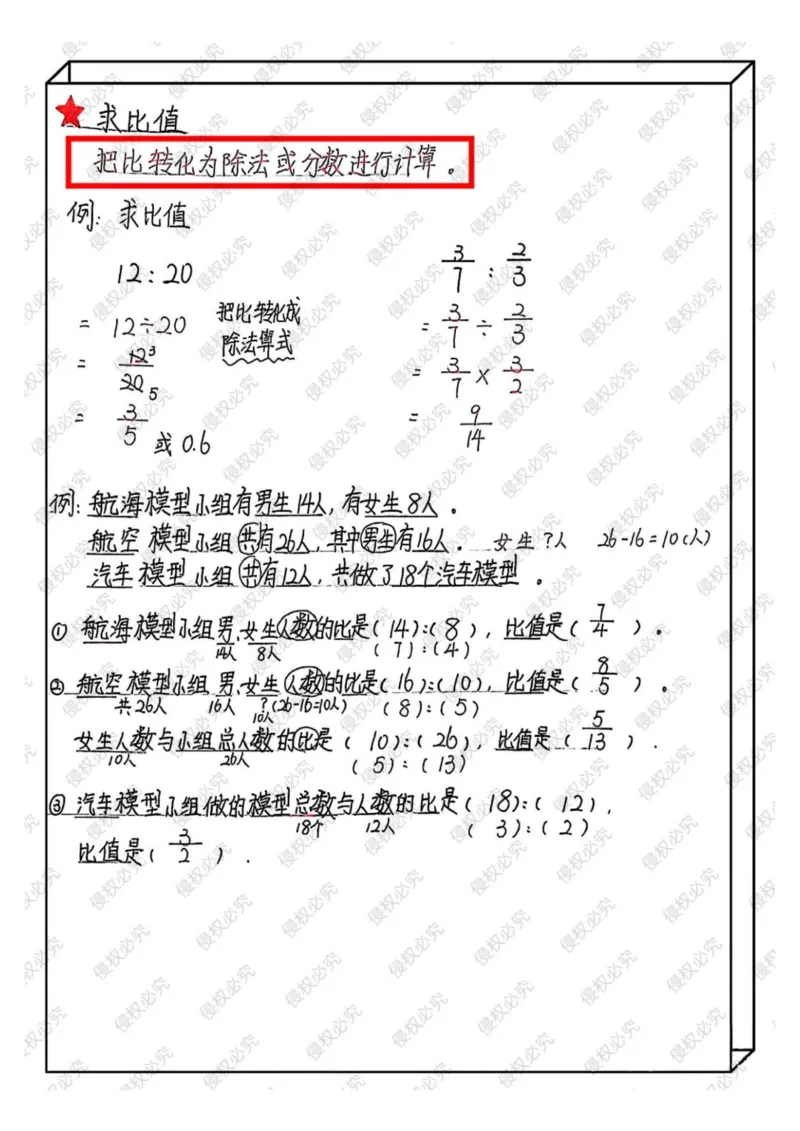 求比值
把比转化为除法或分数进行计算。
例：求比值
12：20
= 12÷20 把比转化成除法算式
= 12/20 3 5
= 3/5 或 0.6
3/7 : 2/3
= 3/7 ÷ 2/3
= 3/7 × 3/2
= 9/14
例：航海模型小组有男生14人，有女生8人。
航空模型小组共有26人，其中男生有16人。 女生？人 26-16=10(人)
汽车模型小组共有12人，共做了18个汽车模型。
① 航海模型小组男、女生人数的比是(14):(8)，比值是(7/4)。
14人 8人 (7):(4)
② 航空模型小组男、女生人数的比是(16):(10)，比值是(8/5)。
共26人 16人 ?(26-16=10人) (8):(5)
10人
女生人数与小组总人数的比是(10):(26)，比值是(5/13).
10人 26人 (5):(13)
③ 汽车模型小组做的模型总数与人数的比是(18):(12),
18个 12人 (3):(2)
比值是(3/2).
侵权必究